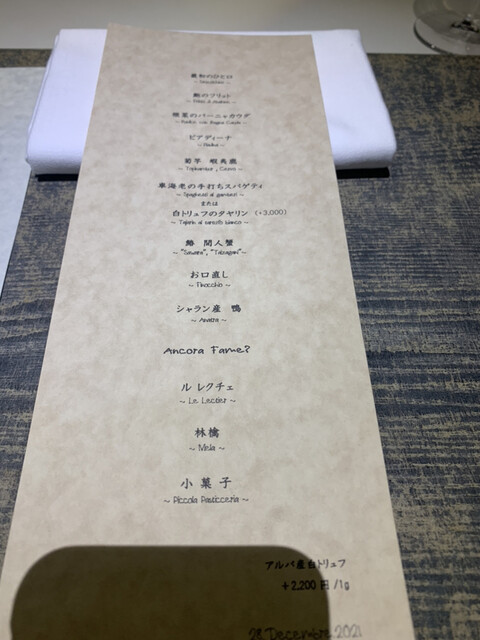 最初のひと口
～ Stuzzichino ～
鮑のフリット
根菜のバーニャカウダ
～ Radice con Bagna Cauda ～
ピアディーナ
～ Piadina ～
菊芋 蝦夷鹿
～ Topinambur , Cervo ～
車海老の手打ちスパゲティ
～ Spaghetti ai gamberi ～
または
白トリュフのタヤリン (+3,000)
～ Tajarin al tartufo bianco ～
鰆 間人蟹
～ "Sawara", "Taizagani" ～
お口直し
～ Finocchio ～
シャラン産 鴨
～ Anatra ～
Ancora Fame?
ル レクチェ
～ Le Lectier ～
林檎
～ Mela ～
小菓子
～ Piccola Pasticceria ～
アルバ産白トリュフ
+2,200 円 /1g
28 Decembre 2021